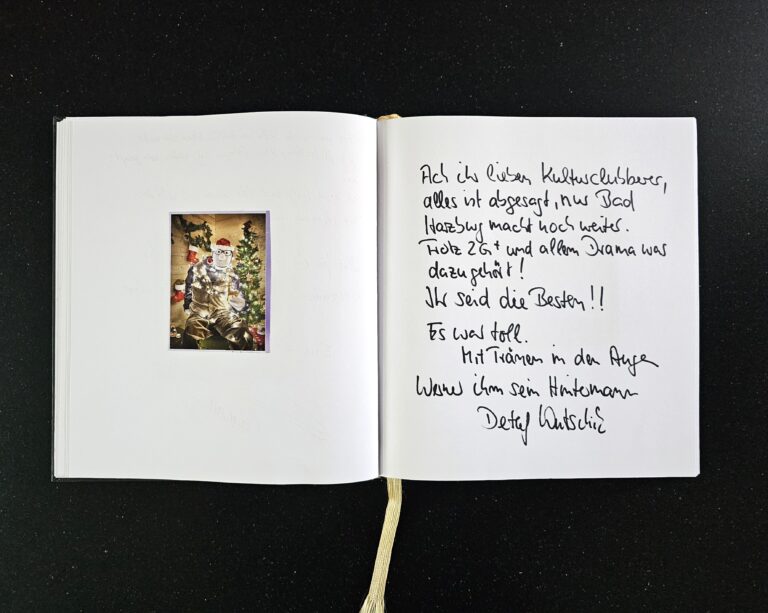 Ach ihr lieben Kulturclubberer,
alles ist abgesagt, nur Bad
Harzburg macht noch weiter.
Trotz 2G+ und allem Drama was
dazu gehört!
Ihr seid die Besten!!
Es war toll.
Mit Tränen in den Augen
Werner ihm sein Hintermann
Detlef Wutschik